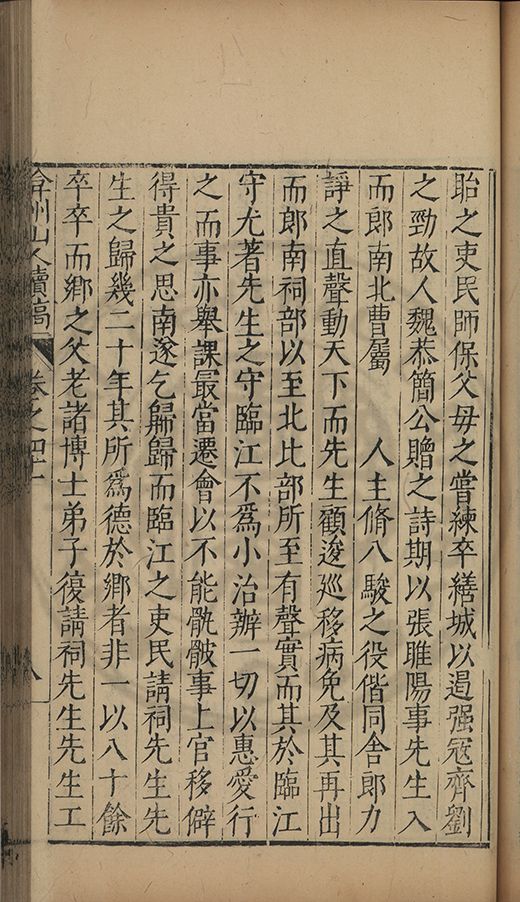 眙之吏民師保父毋之嘗練卒繕城以遏强冦齊劉
之勁故人魏恭簡公贈之詩期以張睢陽事先生入
而郎南北曹屬　　人主脩八駿之役偕同舍郎力
諍之直聲動天下而先生顧逡廵移病免及其再出
而郎南祠部以至北比部所至有聲實而其於臨江
守尤著先生之守臨江不爲小治辦一切以惠愛行
之而事亦舉課最當遷會以不能骫骳事上官移僻
得貴之思南遂乞歸歸而臨江之吏民請祠先生先
生之歸幾二十年其所爲德於鄉者非一以八十餘
卒卒而鄉之父老諸博士弟子復請祠先生先生工
弇州山人續稿　卷之四十　八